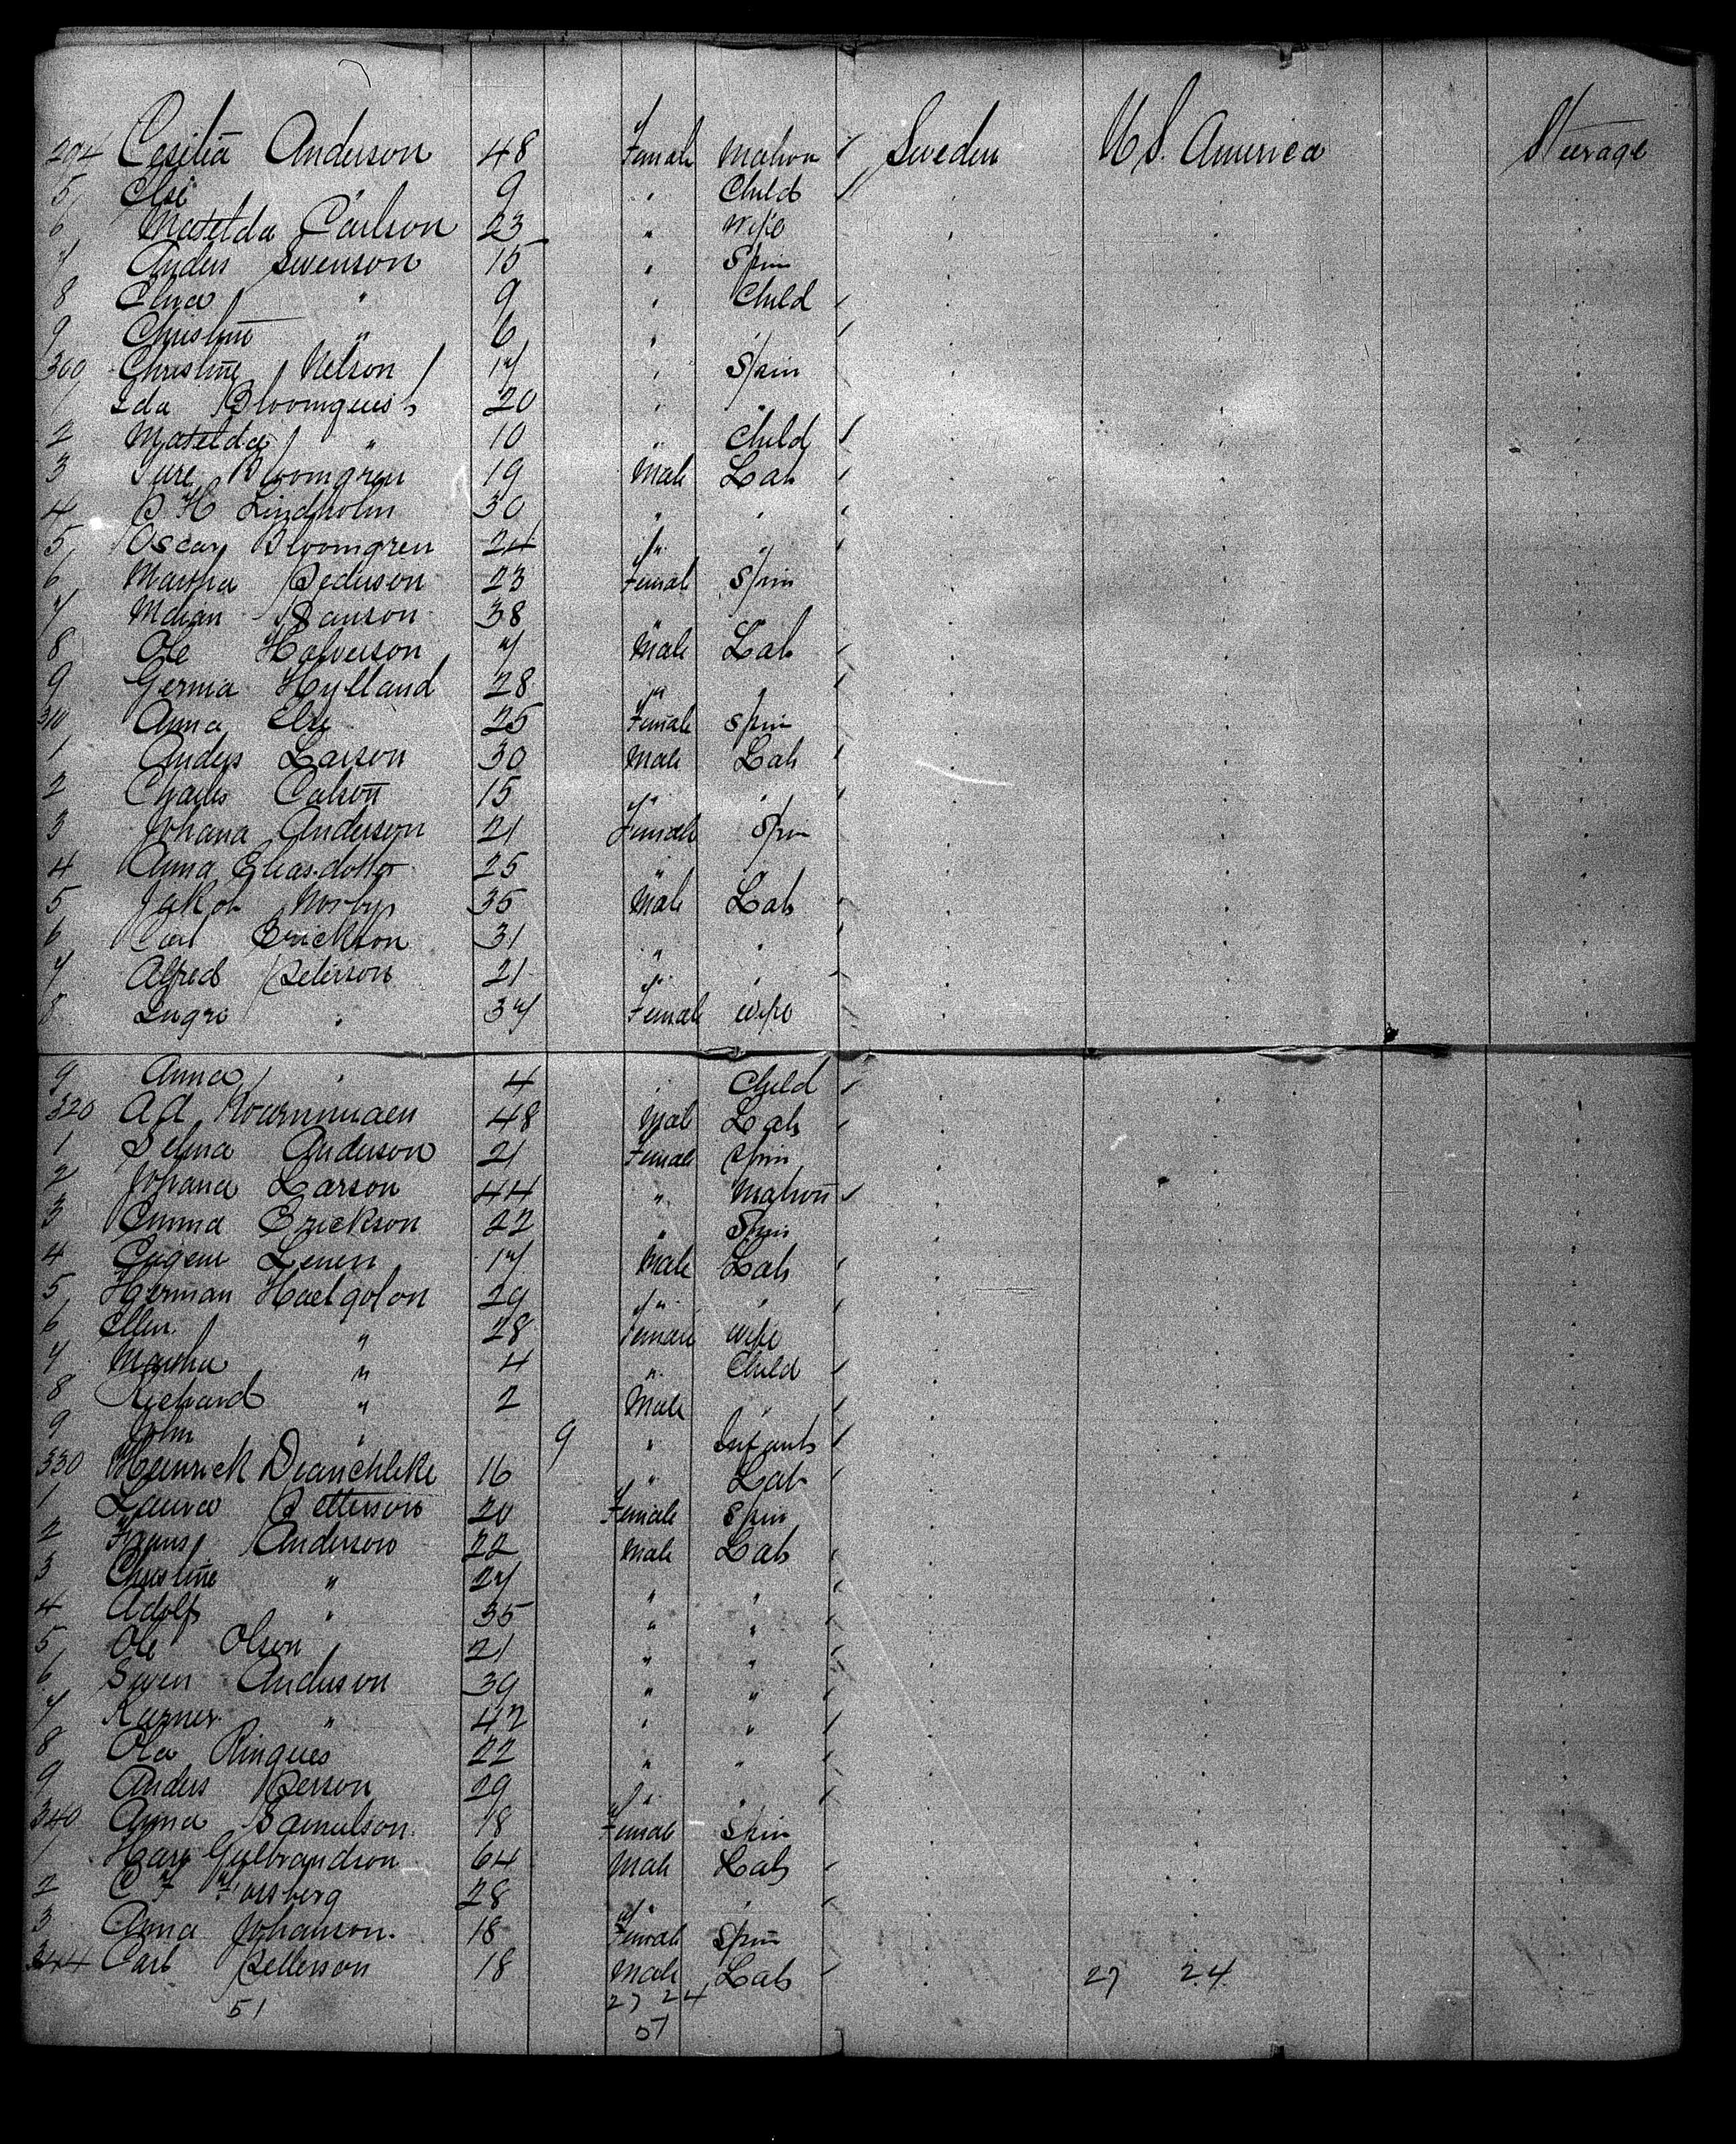 294 Cesilia Anderson 48 Female Matron Sweden U S. America Steerage
5 Elsi " 9 " Child
6 Matelda Carlson 23 " Wife
7 Anders Swenson 15 " Spin
8 Elna " 9 " Child
9 Christine " 6 " "
300 Christine Nelson 17 " Spin
1 Ida Bloomquist 20 " "
2 Matelda " 10 " Child
3 Ture Bloomgren 19 Male Lab
4 P H Lindholm 30 " "
5 Oscar Bloomgren 24 " "
6 Martha Pederson 23 Female Spin
7 38 "
8 Ole Halverson 7 Male Lab
9 Gerina Hylland 28 " "
310 Anna Else 25 Female Spin
1 Anders Larson 30 Male Lab
2 Charles Calson 15 " "
3 Johana Anderson 21 Female Spin
4 Anna Eliasdotter 25 " "
5 Jakob Norby 35 Male Lab
6 Carl Erickson 31 " "
7 Alfred Peterson 21 " "
8 Ingri " 37 Female Wife
9 Anna " 4 " Child
320 A A 48 Male Lab
1 Selma Anderson 21 Female Spin
2 Johana Larson 44 " Matron
3 Emma Erickson 22 " Spin
4 Eugen Lenen 17 Male Lab
5 Herman 29 " "
6 Ellen " 28 Female Wife
7 Martha " 4 " Child
8 Richard " 2 Male "
9 John " 9 " Infant
330 Heinrick 16 " Lab
1 Laura Petterson 20 Female Spin
2 Hans Anderson 22 Male Lab
3 Christine " 27 " "
4 Adolf " 35 " "
5 Ole Olson 21 " "
6 Swen Anderson 39 " "
7 " 42 " "
8 Ola Ringues 22 " "
9 Anders Person 29 " "
340 Anna Samulson 18 Female Spin
1 Hans Gulbrandson 64 Male Lab
2 C F Forsberg 28 " "
3 Anna Johanson. 18 Female Spin
344 Carl Pellerson 18 Male Lab 27 24
51 27 24
51